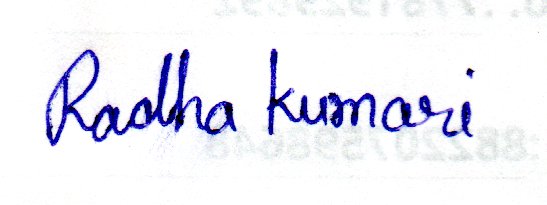 Radha kumari